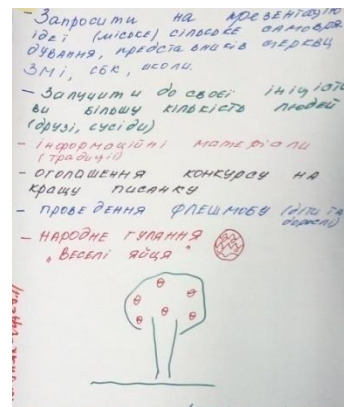 - Запросити на презентацію
ідеї (міське) сільське самовря
дування, представників церкви
ЗМІ, СБК, школи.
- Залучити до своєї ініціати
ви більшу кількість людей
(друзі, сусіди)
- інформаційні матеріали
(традиції)
- оголошення конкурсу на
кращу писанку
- проведення флешмобу (діти та
дорослі)
- народне гуляння
"веселі яйця"